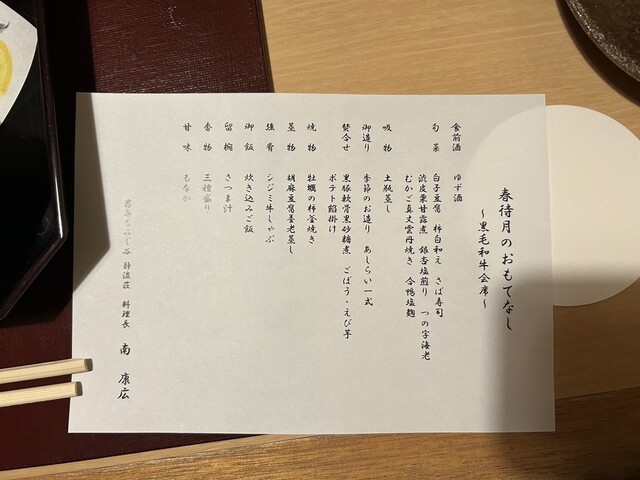 春待月のおもてなし
～黒毛和牛会席～
食前酒 ゆず酒
旬菜 白子豆腐 柿白和え さば寿司
渋皮栗甘露煮 銀杏塩煎り つの字海老
むかご真丈雲丹焼き 合鴨塩麹
吸物 土瓶蒸し
御造り 季節のお造り あしらい一式
焚合せ 黒豚軟骨黒砂糖煮 ごぼう・えび芋
ポテト餡掛け
焼物 牡蠣の柿釜焼き
蒸物 胡麻豆腐養老蒸し
強肴 シジミ牛しゃぶ
御飯 炊き込みご飯
留椀 さつま汁
香物 三種盛り
甘味 もなか
荘 料理長 南 康広